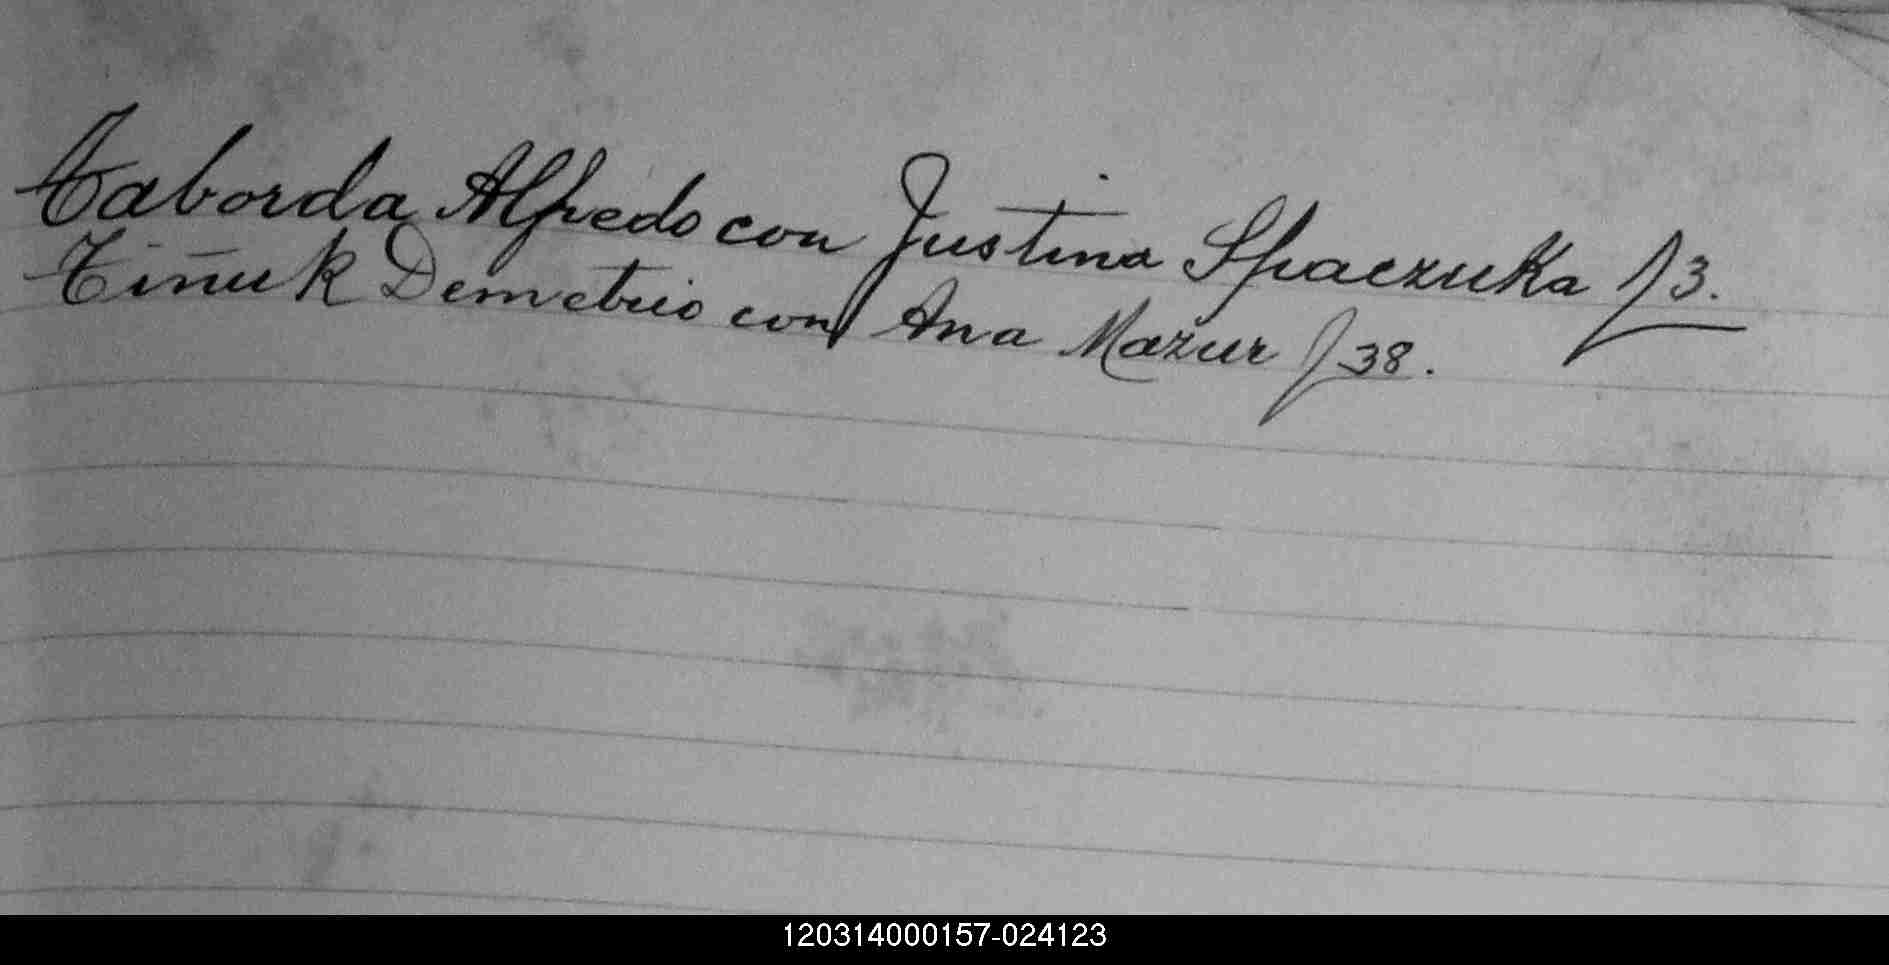 Taborda Alfredo con Justina Spaczuka f 3.
Tiñuk Demetrio con Ana Mazur f 38.
120314000157-024123